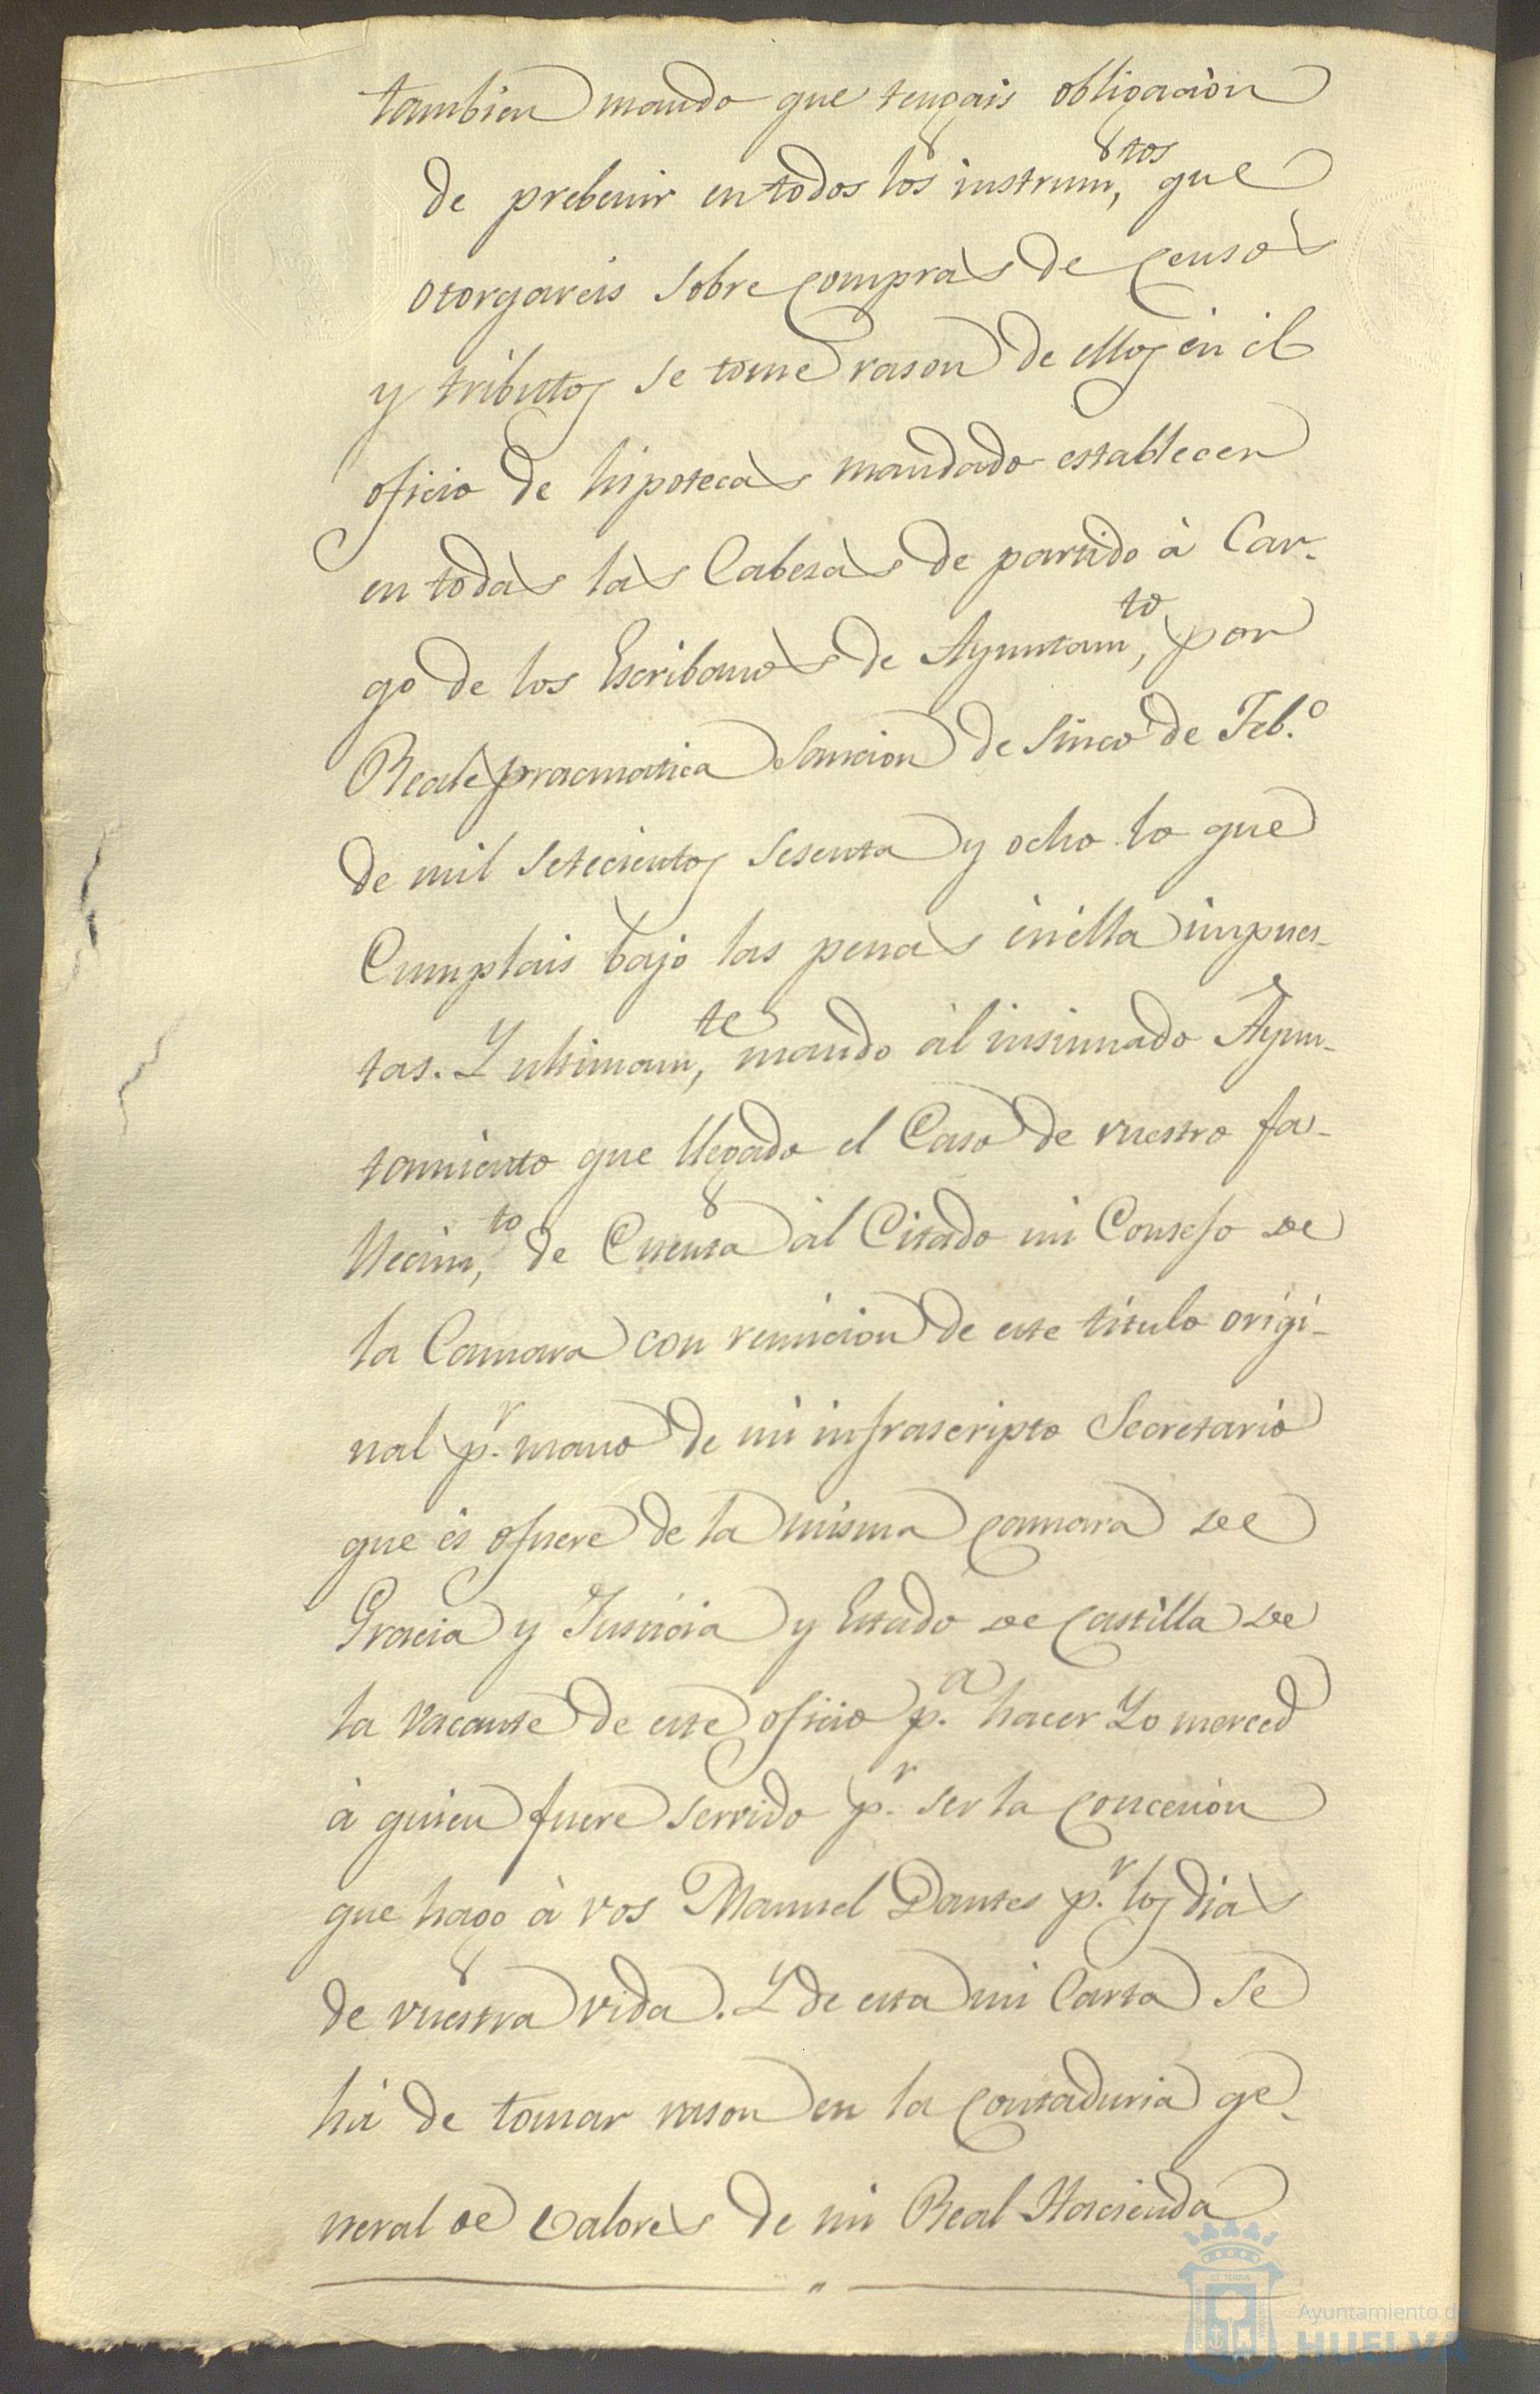 tambien mando que tengais obligacion
de prebenir en todos los instrum,tos que
otorgareis sobre compras de censos
y tributos se tome rason de ellos èn èl
oficio de hipotecas mandado establecer
en todas las Cabesas de partido à Car-
go de los Escribanos de Ayuntam,to por
Real pracmatica sancion de sinco de Feb.o
de mil setecientos sesenta y ocho lo que
Cumplais bajo las penas ènella impues-
tas. Y ultimam,te mando àl insinuado Ayun-
tamiento que llegado el Caso de vuestro fa-
llecim,to de Cuenta àl Citado mi Consejo de
la Camara con remicion de este titulo origi-
nal p.r mano de mi infrascripto Secretario
que ès ofuere de la misma camara de
Gracia y Justicia y Estado de Castilla de
la vacante de este oficio p.a hacer Yo merced
à quien fuere servido p.r ser la concecion
que hago à vos Manuel Dantes p.r los dias
de vuestra vida. Y de esta mi Carta se
hà de tomar rason en la contaduria ge-
neral de Valores de mi Real Hacienda
Ayuntamiento de
HUELVA